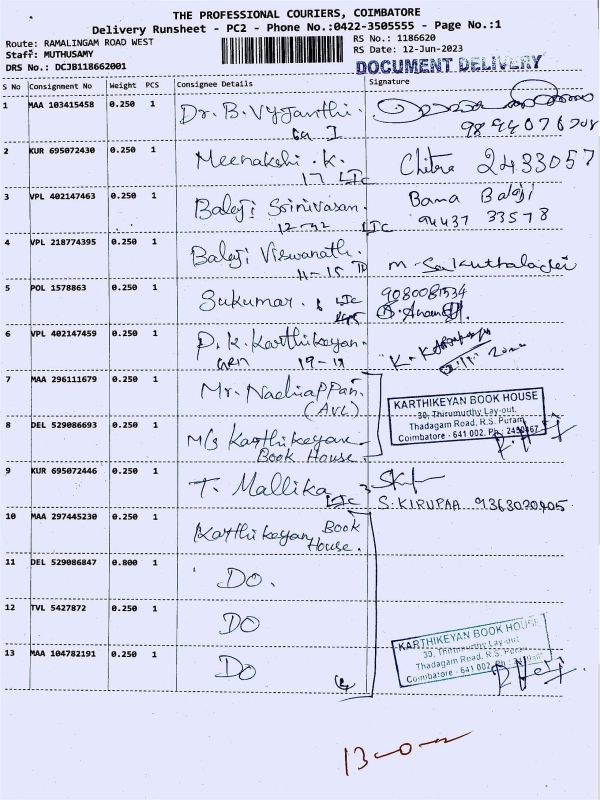 THE PROFESSIONAL COURIERS, COIMBATORE
Delivery Runsheet - PC2 - Phone No.:0422-3505555 - Page No.:1
Route: RAMALINGAM ROAD WEST
RS No.: 1186620
Staff: MUTHUSAMY
RS Date: 12-Jun-2023
DRS No.: DCJB118662001
DOCUMENT DELIVERY
S No Consignment No Weight PCS Consignee Details Signature
1 MAA 103415458 0.250 1 Dr. B. Vyjanthi.
2 KUR 695072430 0.250 1 Meenakshi . K. Chitra 2433057
17 LIC
3 VPL 402147463 0.250 1 Balaji Srinivasan. Bama Balaji
12-32 LIC 94437 33578
4 VPL 218774395 0.250 1 Balaji Viswanath.
11-15
5 POL 1578863 0.250 1 Sukumar. LIC 9080081534
6 VPL 402147459 0.250 1 P. K. Karthikeyan.
19-19
7 MAA 296111679 0.250 1 Mr. Nachiappan.
(AVL)
KARTHIKEYAN BOOK HOUSE
30, Thirumurthy Lay-out,
Thadagam Road, R.S. Puram,
Coimbatore - 641 002. Ph :
8 DEL 529086693 0.250 1 M/s Karthikeyan
Book House.
9 KUR 695072446 0.250 1 T. Mallika LIC
S. KIRUPAA 9363020905
10 MAA 297445230 0.250 1 Karthikeyan Book
House.
11 DEL 529086847 0.800 1 DO.
12 TVL 5427872 0.250 1 DO
13 MAA 104782191 0.250 1 DO
KARTHIKEYAN BOOK HOUSE
30, Thirumurthy Lay-out
Thadagam Road, R.S. Puram
Coimbatore - 641 002. Ph :
13-0-